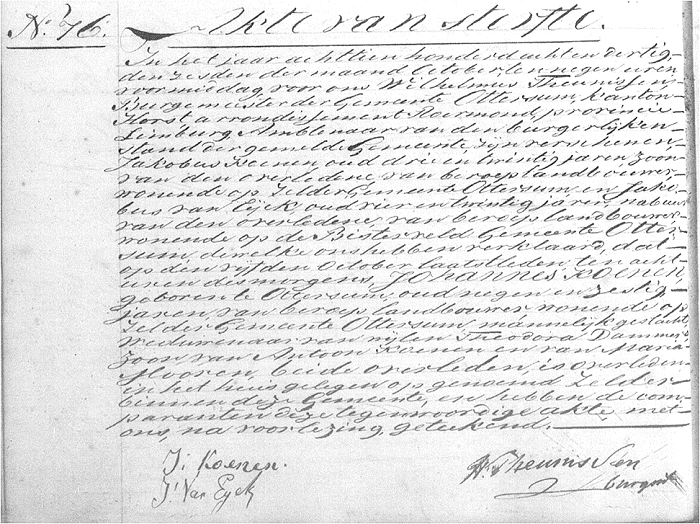 N.º 76. Akte van sterfte.
In het jaar achttien honderd acht en dertig,
den zesden der maand October, ten negen uren
voormiddag, voor ons Wilhelmus Theunissen,
Burgemeester der Gemeente Ottersum, kanton
Horst arrondissement Roermond, provincie
Limburg Ambtenaar van den burgerlijken
stand der gemelde Gemeente, zijn verschenen
Jakobus Koenen, oud drie en twintig jaren zoon
van den overledene, van beroep landbouwer
wonende op Zelder Gemeente Ottersum, en Jako-
bus van Eyck, oud vier en twintig jaren, nabuur
van den overledene, van beroep landbouwer
wonende op de Bisterveld Gemeente Otter-
sum, dewelke ons hebben verklaard, dat
op den vijfden October laatstleden, ten acht
uren des morgens, Johannes Koenen,
geboren te Ottersum, oud negen en zestig
jaren, van beroep landbouwer wonende op
Zelder Gemeente Ottersum, mannelijk geslacht
Weduwenaar van wijlen Theodora Dammers
zoon van Antoon Koenen en van Maria
Mooren, beide overleden, is overleden
in het huis gelegen op genoemd Zelder
binnen deze Gemeente, en hebben de com-
paranten deze tegenwoordige akte met
ons, na voorlezing, geteekend.
J: Koenen.
W. Theunissen
J: Van Eyck
burgmr